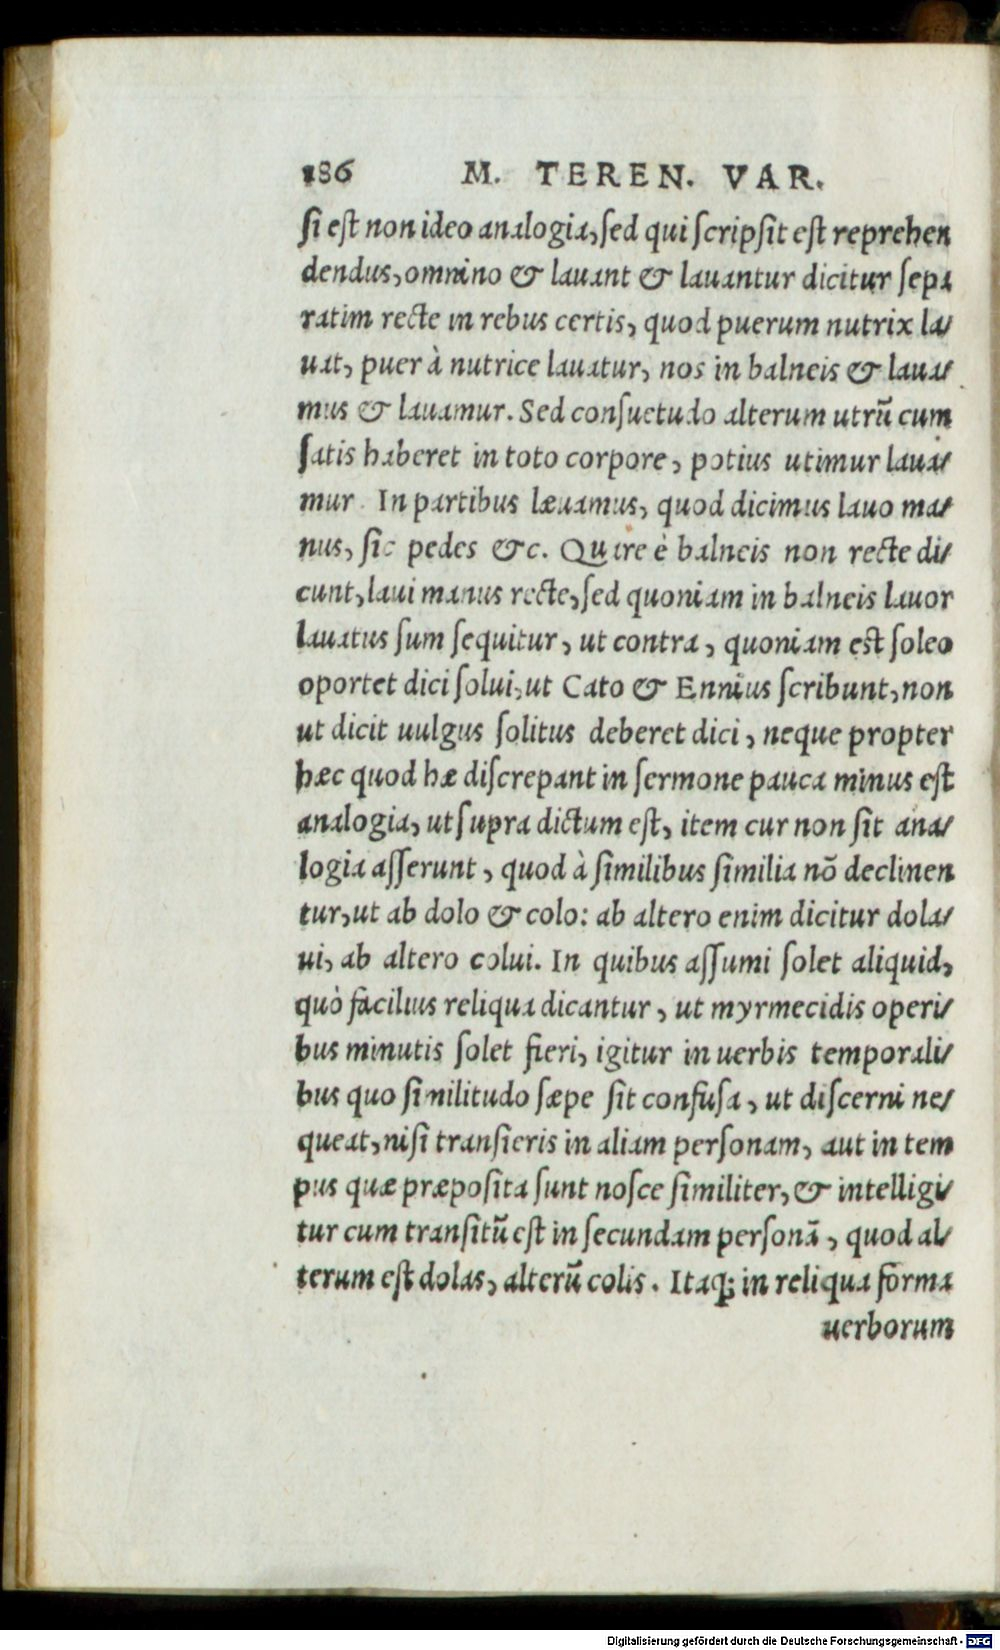 186 M. TEREN. VAR.
ſi eſt non ideo analogia, ſed qui ſcripſit eſt reprehen
dendus, omnino & lauant & lauantur dicitur ſepa
ratim recte in rebus certis, quod puerum nutrix la/
uat, puer à nutrice lauatur, nos in balneis & laua/
mus & lauamur. Sed conſuetudo alterum utrū cum
ſatis haberet in toto corpore, potius utimur laua/
mur. In partibus læuamus, quod dicimus lauo ma/
nus, ſic pedes &c. Quare è balneis non recte di/
cunt, laui manus recte, ſed quoniam in balneis lauor
lauatus ſum ſequitur, ut contra, quoniam eſt ſoleo
oportet dici ſolui, ut Cato & Ennius ſcribunt, non
ut dicit uulgus ſolitus deberet dici, neque propter
hæc quod hæ diſcrepant in ſermone pauca minus eſt
analogia, ut ſupra dictum eſt, item cur non ſit ana/
logia aſſerunt, quod à ſimilibus ſimilia nō declinen
tur, ut ab dolo & colo: ab altero enim dicitur dola/
ui, ab altero colui. In quibus aſſumi ſolet aliquid,
quò facilius reliqua dicantur, ut myrmecidis operi/
bus minutis ſolet fieri, igitur in uerbis temporali/
bus quo ſimilitudo ſæpe ſit confuſa, ut diſcerni ne/
queat, niſi tranſieris in aliam perſonam, aut in tem
pus quæ præpoſita ſunt noſce ſimiliter, & intelligi/
tur cum tranſitū eſt in ſecundam perſonā, quod al/
terum eſt dolas, alterū colis. Itaq; in reliqua forma
uerborum
Digitalisierung gefördert durch die Deutsche Forschungsgemeinschaft - DFG